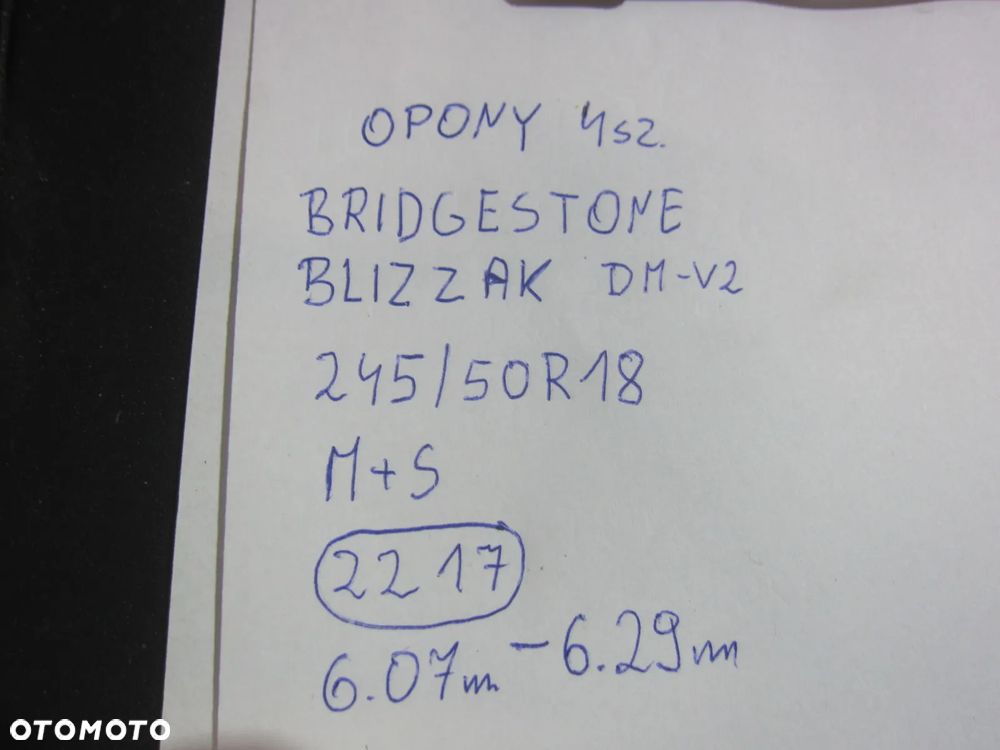 OPONY 4sz.
BRIDGESTONE
BLIZZAK DM-V2
245/50R18
M+S
2217
6.07mm - 6.29mm
OTOMOTO